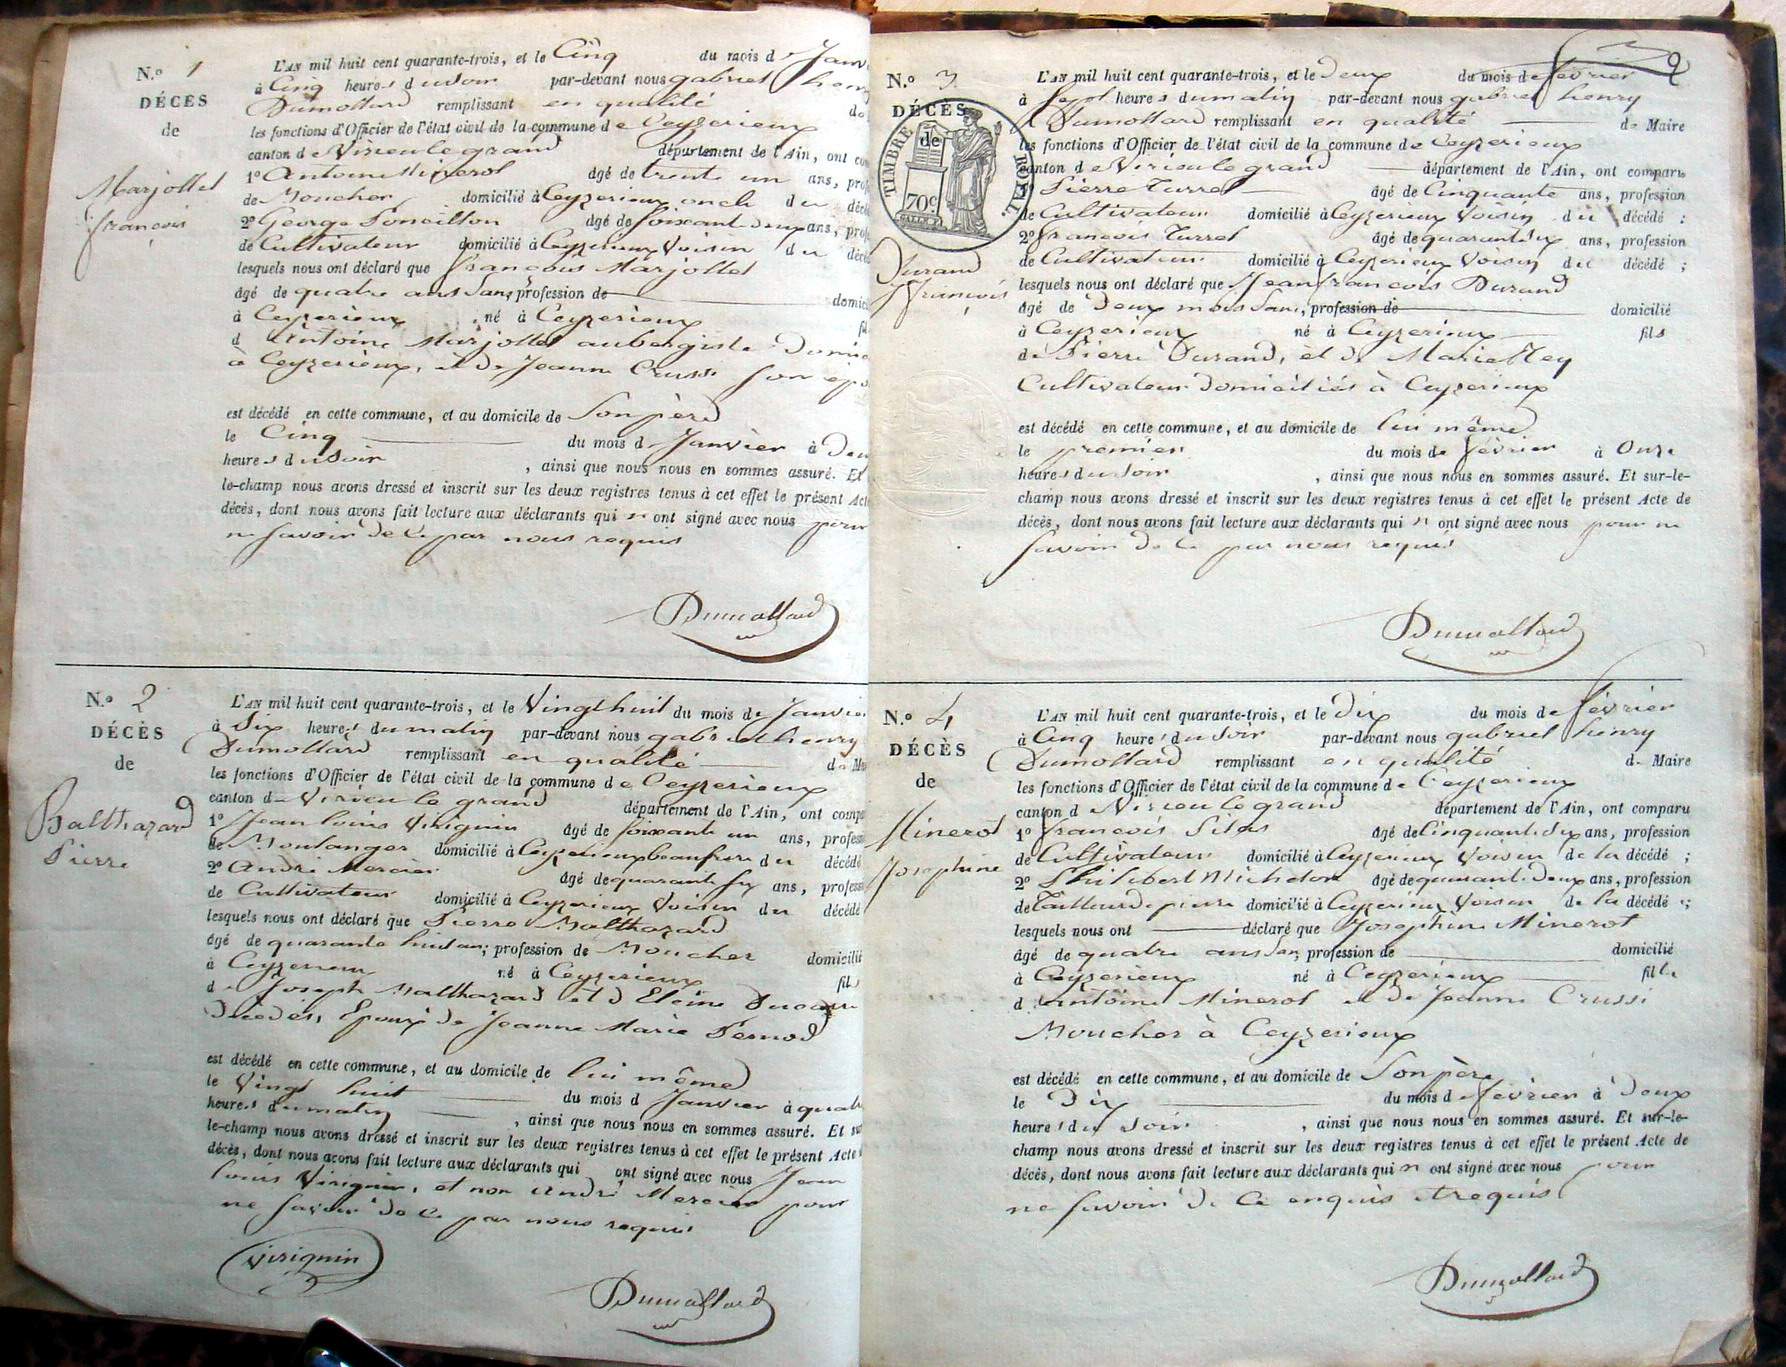 N.º 1
DÉCÈS
de
Marjollet
françois
L'AN mil huit cent quarante-trois, et le Cinq du mois d Janv
à Cinq heures du soir par-devant nous gabriel henry
Dumollard remplissant en qualité de
les fonctions d'Officier de l'état civil de la commune de Ceyzerieux
canton de Virieu le grand département de l'Ain, ont com
1º Antoine Minerot âgé de trente un ans, prof
de Boucher domicilié à Ceyzerieux oncle du décé
2º George Poncillon âgé de soixante deux ans, prof
de Cultivateur domicilié à Ceyzerieux Voisin du décé
lesquels nous ont déclaré que françois Marjollet
âgé de quatre ans sans profession de domici
à Ceyzerieux né à Ceyzerieux fil
d Antoine Marjollet aubergiste domici
à Ceyzerieux, et de Jeanne Crussi son épo
est décédé en cette commune, et au domicile de Son père
le Cinq du mois d Janvier à Deu
heures du soir , ainsi que nous nous en sommes assuré. Et
le-champ nous avons dressé et inscrit sur les deux registres tenus à cet effet le présent Acte
décès, dont nous avons fait lecture aux déclarants qui n ont signé avec nous pour
ne savoir de ce par nous requis
Dumollard
N.º 2
DÉCÈS
de
Balthazard
Pierre
L'AN mil huit cent quarante-trois, et le Vingt huit du mois de Janvier
à Six heures du matin par-devant nous gabriel henry
Dumollard remplissant en qualité de Ma
les fonctions d'Officier de l'état civil de la commune de Ceyzerieux
canton de Virieu le grand département de l'Ain, ont compa
1º Jean louis Virignin âgé de soixante un ans, profess
de Boulanger domicilié à Ceyzerieux beaufrere du décédé
2º André Mercier âgé de quarante six ans, profess
de Cultivateur domicilié à Ceyzerieux Voisin du décédé
lesquels nous ont déclaré que Pierre Balthazard
âgé de quarante huit ans; profession de Boucher domicilié
à Ceyzerieux né à Ceyzerieux fils
de Joseph Balthazard et d Eleine
décédés, Epoux de Jeanne Marie Pernod
est décédé en cette commune, et au domicile de lui même
le Vingt huit du mois d Janvier à quatre
heures du matin , ainsi que nous nous en sommes assuré. Et sur
le-champ nous avons dressé et inscrit sur les deux registres tenus à cet effet le présent Acte
décès, dont nous avons fait lecture aux déclarants qui ont signé avec nous Jean
louis Virignin, et non André Mercier pour
ne savoir de ce par nous requis
Virignin
Dumollard
2
N.º 3
DÉCÈS
de
TIMBRE ROYAL.
70c
Durand
Jfrançois
L'AN mil huit cent quarante-trois, et le Deux du mois de février
à Sept heures du matin par-devant nous gabriel henry
Dumollard remplissant en qualité de Maire
les fonctions d'Officier de l'état civil de la commune de Ceyzerieux
canton de Virieu le grand département de l'Ain, ont comparu
Pierre Turrel âgé de Cinquante ans, profession
de Cultivateur domicilié à Ceyzerieux Voisin du décédé ;
2º françois Turrel âgé de quarante six ans, profession
de Cultivateur domicilié à Ceyzerieux Voisin du décédé ;
lesquels nous ont déclaré que Jean françois Durand
âgé de Deux mois sans, profession de domicilié
à Ceyzerieux né à Ceyzerieux fils
de Pierre Durand, et de Marie Rey
Cultivateur domiciliés à Ceyzerieux
est décédé en cette commune, et au domicile de lui même
le premier du mois de février à Onze
heures du soir , ainsi que nous nous en sommes assuré. Et sur-le-
champ nous avons dressé et inscrit sur les deux registres tenus à cet effet le présent Acte de
décès, dont nous avons fait lecture aux déclarants qui n ont signé avec nous pour ne
savoir de ce par nous requis
Dumollard
N.º 4
DÉCÈS
de
Minerot
Josephine
L'AN mil huit cent quarante-trois, et le Dix du mois de février
à Cinq heures du soir par-devant nous gabriel henry
Dumollard remplissant en qualité de Maire
les fonctions d'Officier de l'état civil de la commune de Ceyzerieux
canton d Virieu le grand département de l'Ain, ont comparu
1º françois Silas âgé de Cinquante six ans, profession
de Cultivateur domicilié à Ceyzerieux Voisin de la décédé ;
2º Philibert Michelon âgé de quarante deux ans, profession
de Tailleur de pierre domicilié à Ceyzerieux Voisin de la décédé ;
lesquels nous ont déclaré que Josephine Minerot
âgé de quatre ans sans profession de domicilié
à Ceyzerieux né à Ceyzerieux fille
d Antoine Minerot et de Jeanne Crussi
Boucher à Ceyzerieux
est décédé en cette commune, et au domicile de Son père
le Dix du mois de février à Deux
heures du soir , ainsi que nous nous en sommes assuré. Et sur-le-
champ nous avons dressé et inscrit sur les deux registres tenus à cet effet le présent Acte de
décès, dont nous avons fait lecture aux déclarants qui n ont signé avec nous pour
ne savoir de ce enquis et requis
Dumollard